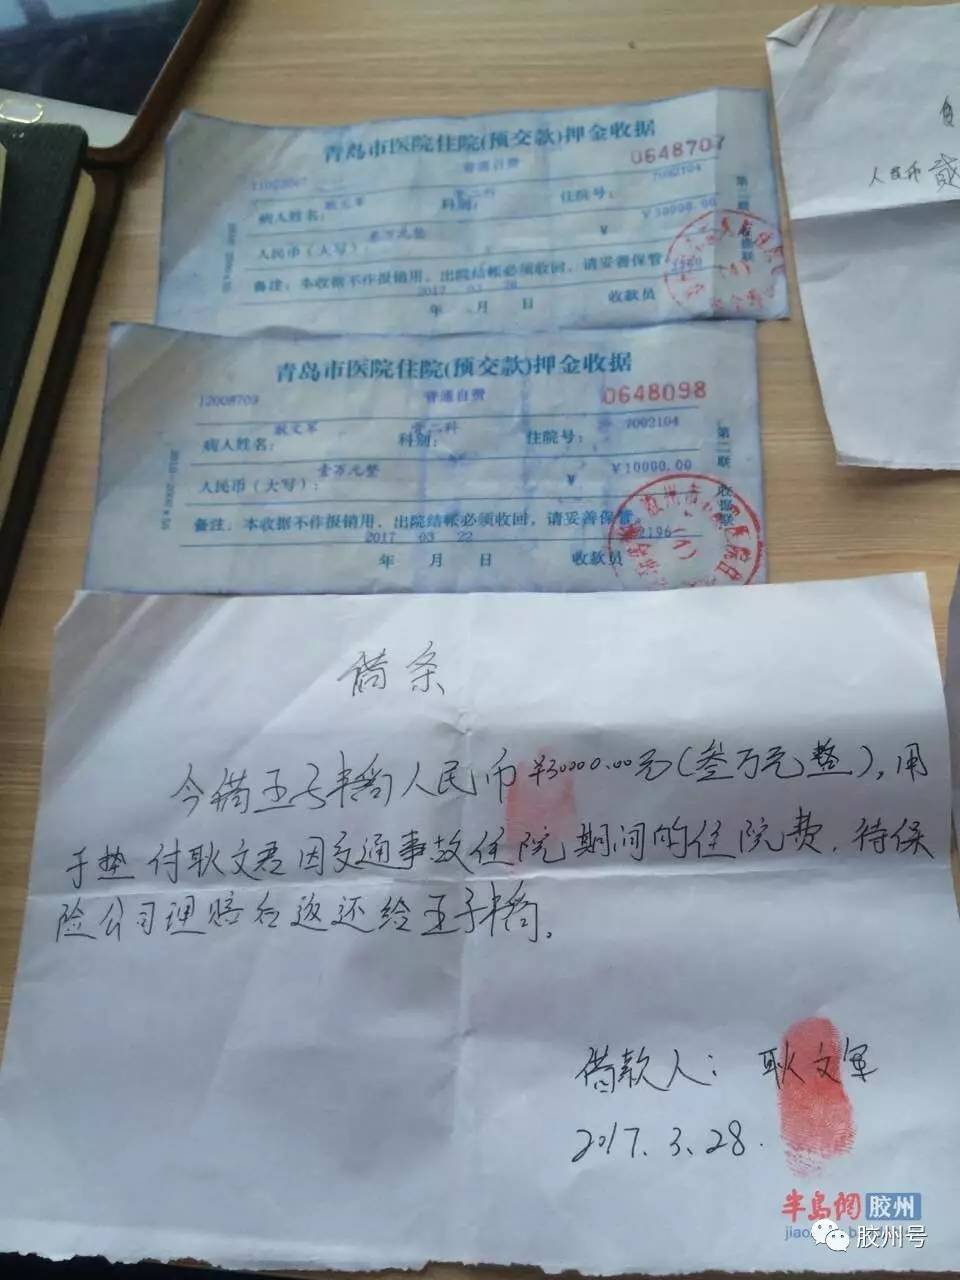 青岛市医院住院(预交款)押金收据
0648707
普通自费
7002104
病人姓名：耿文军 科别：骨二科 住院号：
第二联
人民币（大写）：叁万元整 ¥ ¥30000.00
备注：本收据不作报销用，出院结帐必须收回，请妥善保管
2017 03 28
年 月 日 收款员
青岛市医院住院(预交款)押金收据
12008709 普通自费 0648098
病人姓名：耿文军 科别：骨二科 住院号：7002104
第二联 收据联
人民币（大写）：壹万元整 ¥ ¥10000.00
备注：本收据不作报销用，出院结帐必须收回，请妥善保管
2017 03 22
年 月 日 收款员
人民币
借条
今借王子 人民币¥30000.00元(叁万元整)，用
于垫付耿文君因交通事故住院期间的住院费，待保
险公司理赔后返还给王子 。
借款人：耿文军
2017.3.28.
半岛网 胶州
胶州号